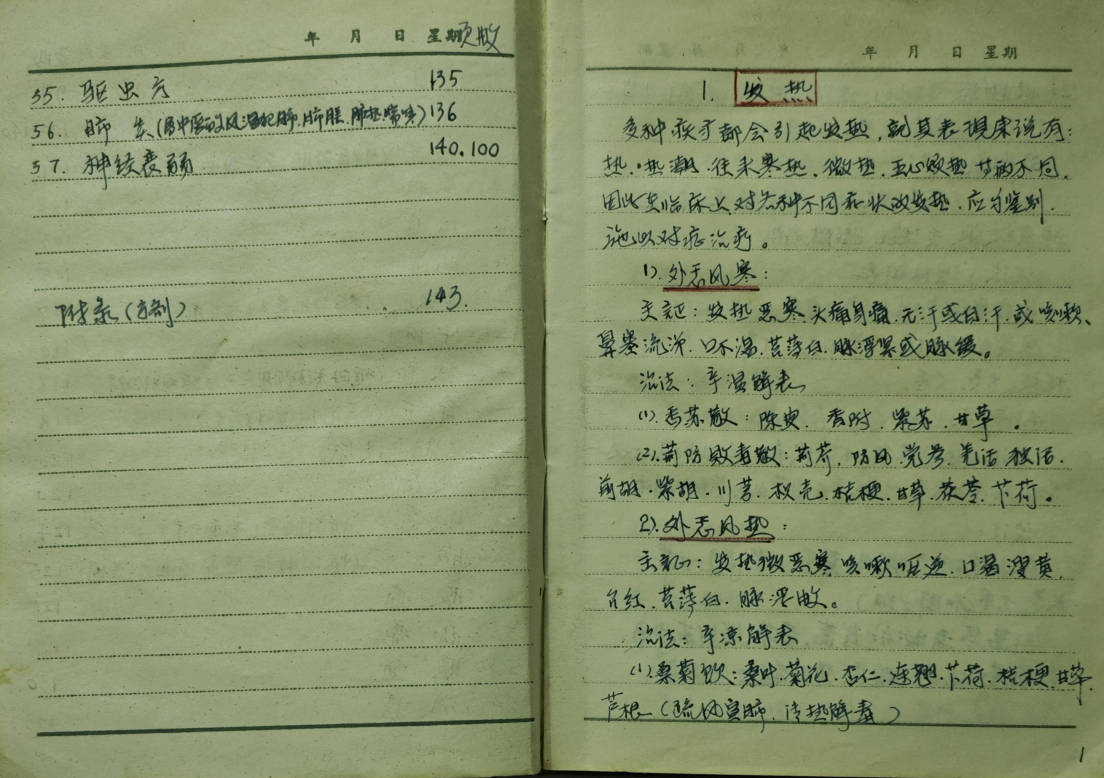 年 月 日 星期 页数
55. 驱虫方 135
56. 肺炎(属中医的风温犯肺,肺胀,肺热喘咳) 136
57. 神经衰弱 140.100
附录(方剂) 143.
年 月 日 星期
1. 发热
多种疾病都会引起发热,就其表现来说有:
热·热潮.往来寒热.微热.五心烦热等的不同.
因此在临床上对各种不同症状的发热.应予鉴别.
施以对症治疗。
1).外感风寒:
主証:发热恶寒.头痛身痛.无汗或自汗.或咳嗽、
鼻塞流涕.口不渴.苔薄白.脉浮紧或脉缓。
治法:辛温解表
(1).香苏散:陈皮.香附.紫苏.甘草。
(2).荊防败毒散:荊芥.防风.党参.羌活.独活.
前胡.柴胡.川芎.枳壳.桔梗.甘草.茯苓.卞荷。
2).外感风热:
主証:发热微恶寒.咳嗽咽 口渴溲黄.
舌红.苔薄白.脉浮数。
治法:辛凉解表
(1).桑菊饮:桑叶.菊花.杏仁.连翘.卞荷.桔梗.甘草.
芦根(疏风宣肺.清热解毒)
1